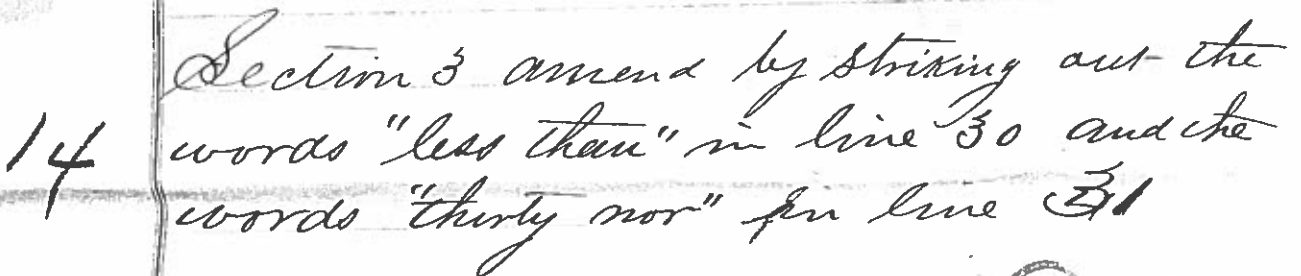 Section 3 amend by striking out the
14 words "less than" in line 30 and the
words "thirty nor" in line 31